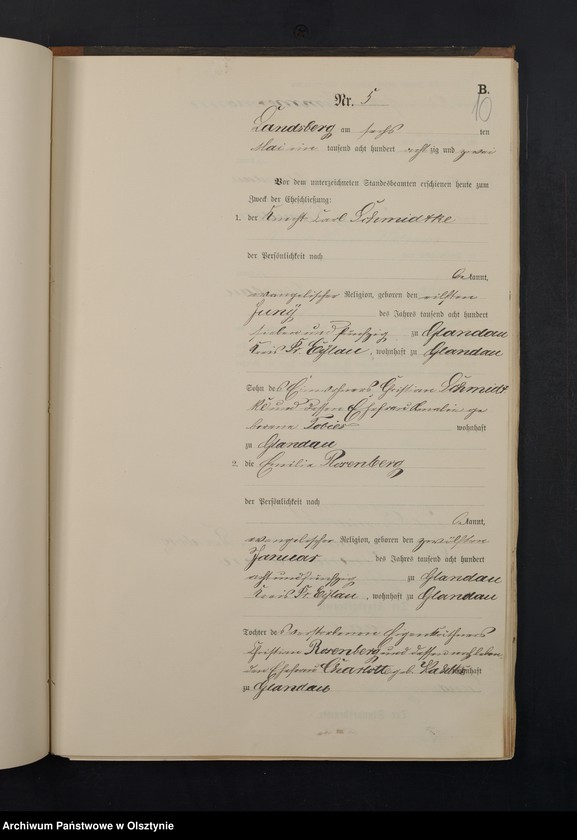 B.
Nr. 5
10
Landsberg am sechs ten
Mai ein tausend acht hundert acht zig und zwei
Vor dem unterzeichneten Standesbeamten erschienen heute zum
Zweck der Eheschließung:
1. der Knecht Carl Schmidtke
der Persönlichkeit nach
be kannt,
evangelischer Religion, geboren den elften
Juny des Jahres tausend acht hundert
sieben und fünfzig zu Glandau
Kreis Pr. Eylau, wohnhaft zu Glandau
Sohn des Einwohners Christian Schmidt-
ke und dessen Ehefrau Amalie ge
borene Tobies wohnhaft
zu Glandau
2. die Emilie Rosenberg
der Persönlichkeit nach
be kannt,
evangelischer Religion, geboren den zwölften
Januar des Jahres tausend acht hundert
acht und fünfzig zu Glandau
Kreis Pr. Eylau, wohnhaft zu Glandau
Tochter des verstorbenen Eigenkäthners
Christian Rosenberg und dessen noch leben
den Ehefrau Charlotte geb. wohnhaft
zu Glandau
Archiwum Państwowe w Olsztynie